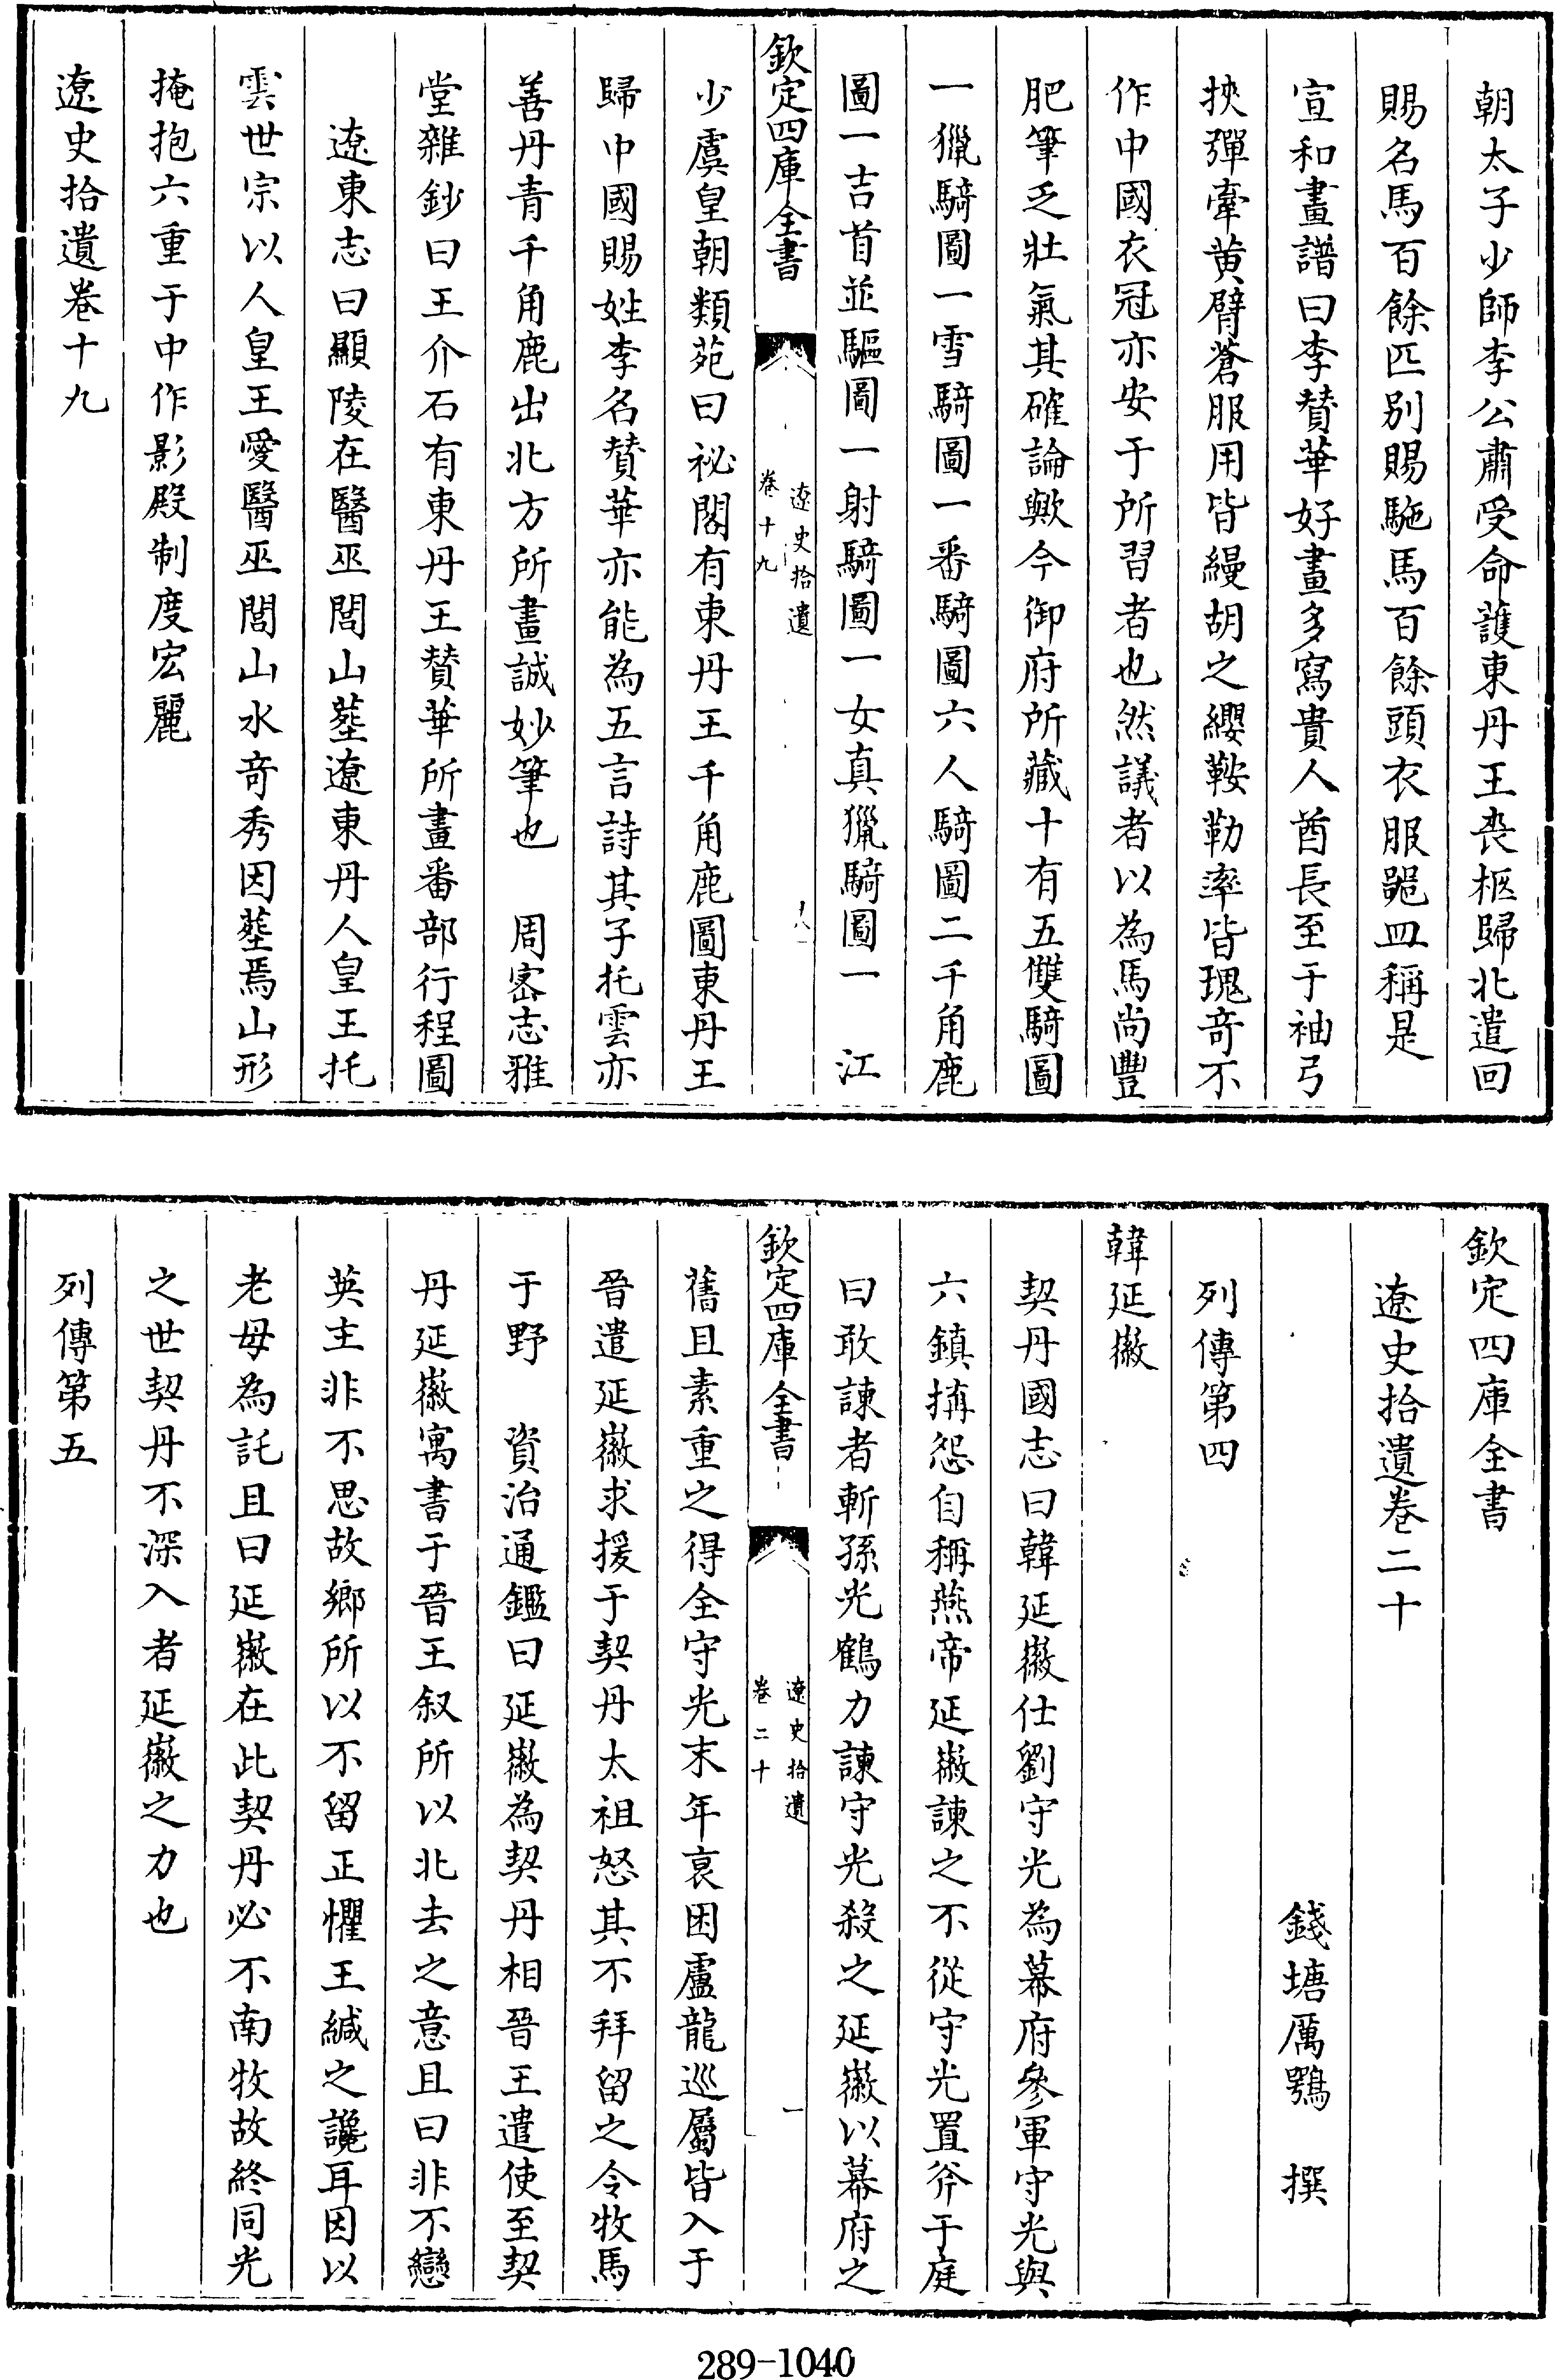 朝太子少師李公肅受命護東丹王喪柩歸北遣回
賜名馬百餘匹别賜駞馬百餘頭衣服噐皿稱是
宣和畫譜曰李賛華好畫多寫貴人酋長至于袖弓
挾彈牽黄臂蒼服用皆縵胡之纓鞍勒率皆瑰竒不
作中國衣冠亦安于所習者也然議者以為馬尚豐
肥筆乏壯氣其確論歟今御府所藏十有五雙騎圖
一獵騎圖一雪騎圖一番騎圖六人騎圖二千角鹿
圖一吉首並驅圖一射騎圖一女真獵騎圖一　江
欽定四庫全書
遼史拾遺
卷十九
八
少虞皇朝類苑曰祕閣有東丹王千角鹿圖東丹王
歸中國賜姓李名賛華亦能為五言詩其子托雲亦
善丹青千角鹿出北方所畫誠妙筆也　周宻志雅
堂雜鈔曰王介石有東丹王賛華所畫番部行程圖
遼東志曰顯陵在醫巫閭山塟遼東丹人皇王托
雲世宗以人皇王愛醫巫閭山水竒秀因塟焉山形
掩抱六重于中作影殿制度宏麗
遼史拾遺卷十九
欽定四庫全書
遼史拾遺卷二十
錢塘厲鶚　撰
列傳第四
韓延徽
契丹國志曰韓延徽仕劉守光為幕府參軍守光與
六鎮搆怨自稱燕帝延徽諫之不從守光置斧于庭
曰敢諫者斬孫光鶴力諫守光殺之延徽以幕府之
欽定四庫全書
遼史拾遺
卷二十
一
舊且素重之得全守光末年衰困盧龍巡屬皆入于
晉遣延徽求援于契丹太祖怒其不拜留之令牧馬
于野　資治通鑑曰延徽為契丹相晉王遣使至契
丹延徽寓書于晉王叙所以北去之意且曰非不戀
英主非不思故鄉所以不留正懼王緘之讒耳因以
老母為託且曰延徽在此契丹必不南牧故終同光
之世契丹不深入者延徽之力也
列傳第五
289-1040